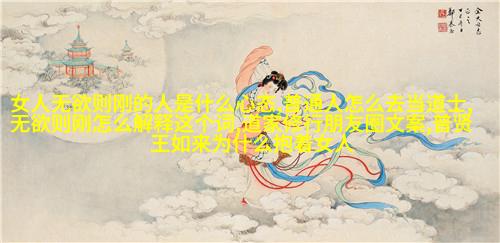 女人无欲则刚的人是什么心态,普通人怎么去当道士,
无欲则刚怎么解释这个词,道家修行朋友圈文案,普贤
王如来为什么抱着女人